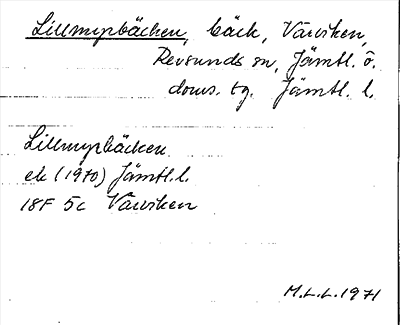 Lillmyrbäcken, bäck, Varviken,
Revsunds sn, Jämtl. ö.
doms. tg. Jämtl. l.
Lillmyrbäcken
ek (1970) Jämtl. l.
18F 5c Varviken
M.L.L. 1971